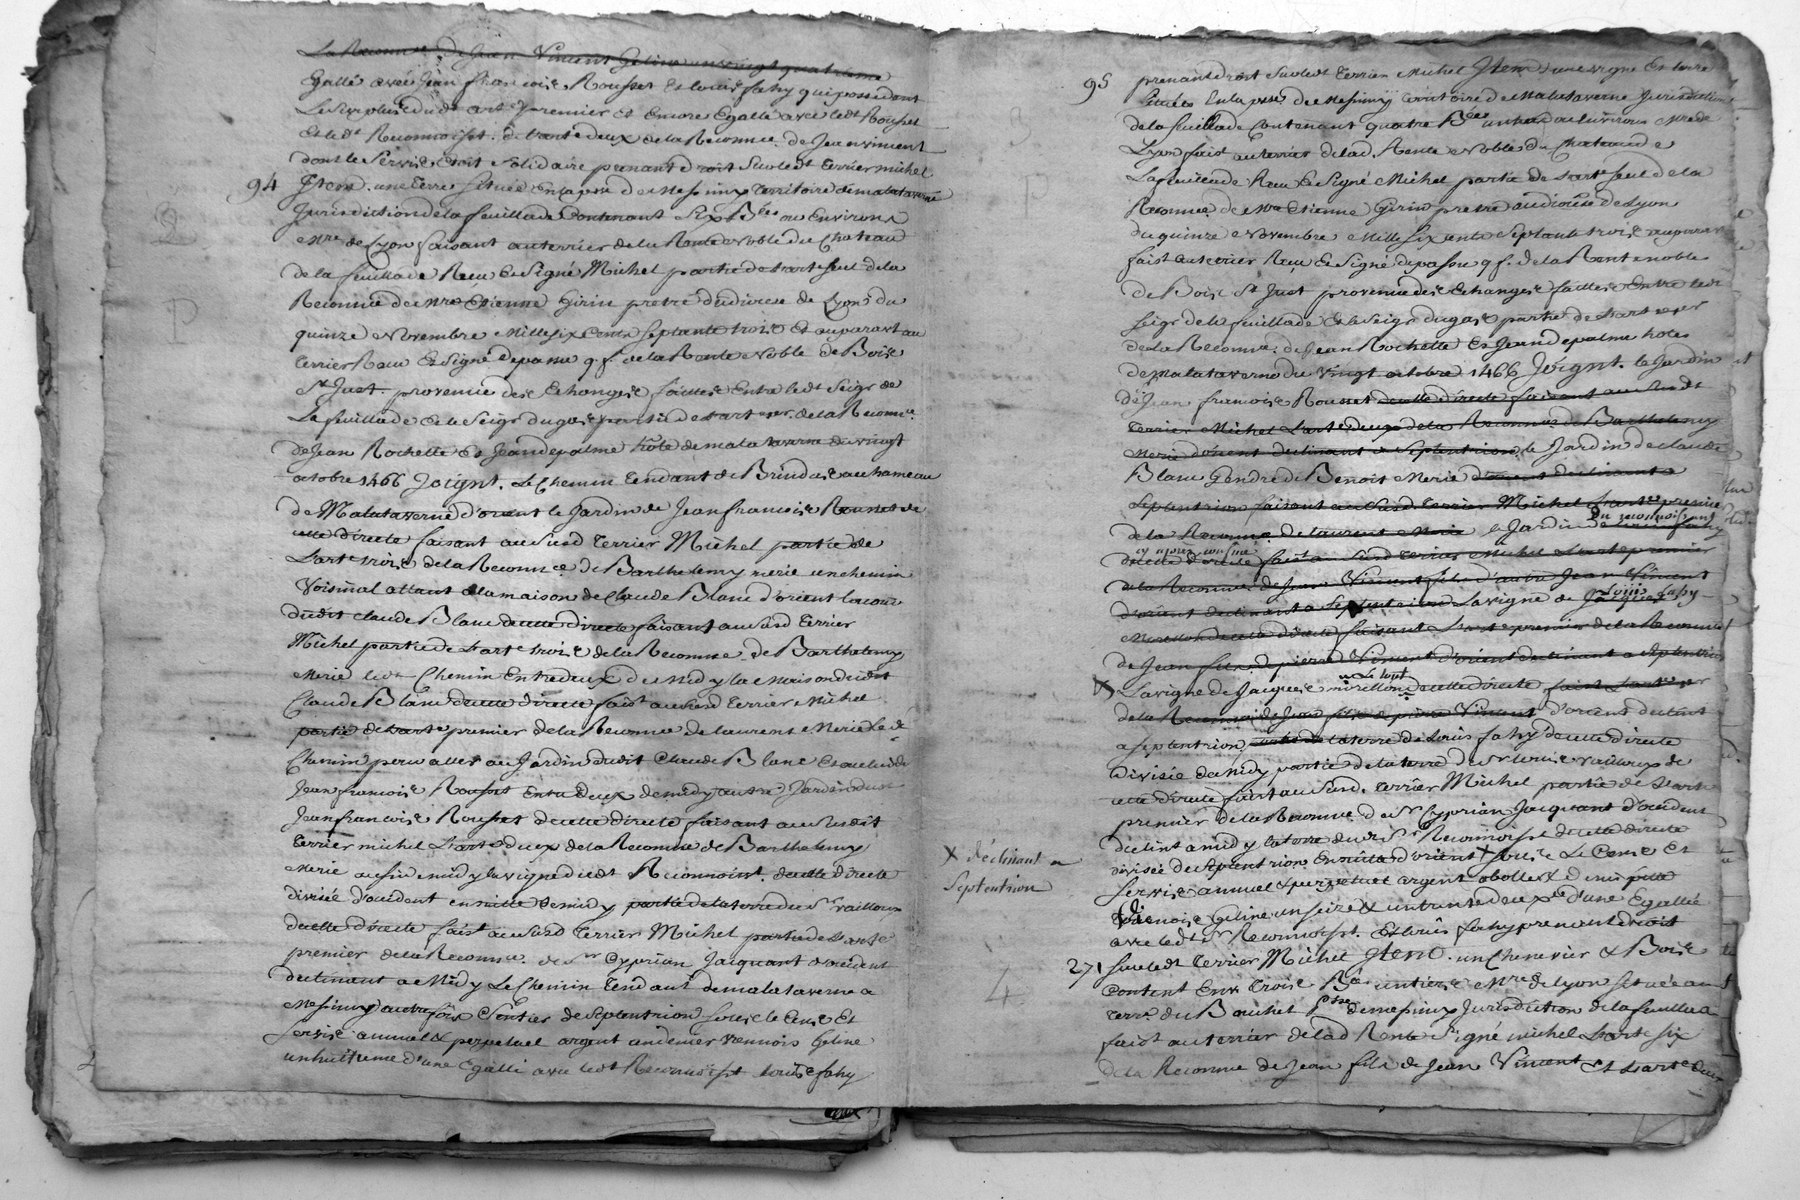 La Reconnce de Jean Vincent Geline un vingt quatrieme
Egallé avec Jean francoise Rousset et Louis fahy qui possedent
Le surplus dudt arte premier et Encore Egallé avec ledt Rousset
et led Reconnoisst. de l'arte deux de la Reconnce. de Jean Vincent
dont le servis Etoit solidaire prenant droit sur ledt terrier michel
94 Item. une terre située En la psse de Messimy territoire de malataverne
Jurisdiction de la feuillade Contenant six Bées ou Environs
Mre de Lyon faisant au terrier de la Rente Noble du Chateau
de la feuillade Receu Et Signé Michel partie de l'arte seul de la
Reconnce de mre Etienne Girin pretre du diocese de Lyon du
quinze Novembre Mille six Cents septante trois Et auparavt au
terrier Receu Et Signé depassu q.f. de la Rente Noble de Bois
St Juet. provenue des Echanges faittes Entre ledt Seigr de
La feuillade Et le Seigr du gas partie de l'art 1er. de la Reconnce.
de Jean Rochette Et Jean depalme hôte de malataverne du vingt
octobre 1466 Joignt. Le Chemin tendant de Brindas au hameau
de Malataverne d'orient le Jardin de Jean francoise Rousset de
cette directe faisant au susd terrier Michel partie de
L'arte trois de la Reconnce. de Barthelemy merie un chemin
Voisinal allant a la maison de Claude Blanc d'orient la cour
dudit Claude Blanc de cette directe faisant au susd terrier
Michel partie de L'arte trois de la Reconnce de Barthelemy
Merie ledt Chemin Entredeux de Midy la Maison dudit
Claude Blanc de cette directe faist au susd terrier Michel
partie de l'arte premier de la Reconnce de Laurent Merie led
Chemin pour aller au Jardin dudit Claude Blanc Et a celui de
Jean francoise Rousset Entredeux de midy autre Jardin dud
Jean francoise Rousset de cette directe faisant au susdit
terrier michel L'arte deux de la Reconnce de Barthelemy
Merie aussi midy la vigne dudt Reconnoisst. de cette directe
divisée d'occident ensuitte de midy partie de la terre du sr vailloux
de cette directe faist au susd terrier Michel partie de L'arte
premier de la Reconnce. de sr Cyprian Jacquant d'occident
declinant a Midy Le Chemin tendant de malataverne a
Messimy autrefois Sentier de Septentrion sous le Cens Et
servis annuel & perpetuel argent un denier viennois Geline
un huitieme d'une Egallé avec ledt Reconnoisst Louis fahy
95 prenant droit sur ledt terrier Michel Item une vigne Et terre
situées En la psse de Messimy territoire de Malataverne Jurisdiction
de la feuillade Contenant quatre Bées un tiers ou Environs Mre de
Lyon faist au terrier de lad. Rente Noble du Chateau de
La feuillade Receu Et Signé Michel partie de l'arte seul de la
Reconnce. de Mre Etienne Girin pretre au diocèse de Lyon
du quinze Novembre Mille six cents septante trois auparavt
faist au terrier Receu Et Signé depassu q.f. de la Rente noble
de Bois St Juet provenue des Echanges faittes Entre led
Seigr de la feuillade Et le Seigr du gas partie de l'art 1er
de la Reconnce. de Jean Rochette Et Jean depalme hotes
de Malataverne du Vingt octobre 1466 Joignt. le Jardin
de Jean francoise Rousset de cette directe faisant au susdt
terrier Michel L'arte deux de la Reconnce de Barthelemy
Merie d'orient declinant a Septentrion, le Jardin de claude
Blanc Gendre de Benoit Merie d'orient declinant a
septentrion faisant au susd terrier Michel L'arte premier
de la Reconnce. de Laurent Merie le Jardin du reconnoissant
cy apres confiné
de cette directe faist au susd terrier Michel L'arte premier
de la Reconnce de Jean Vincent fils d'autre Jean Vincent
d'orient declinant a Septentrion La vigne de Louis fahy
de cette directe faisant L'arte premier de la Reconnce
de Jean fils de pierre Vincent d'orient declinant a Septentrion
La vigne de Jacques mirellon de cette directe faist L'arte 1er
de la Reconnce de Jean fils de pierre Vincent d'orient declinant
a septentrion, la terre de Louis fahy de cette directe
divisée de midy partie de la terre du sr Louis Vailloux de
cette directe faist au susd. terrier Michel partie de L'arte
premier de la Reconnce de sr Cyprian Jacquant d'occident
declint a midy la terre dudt sr Reconnoisst de cette directe
divisée de Septentrion Ensuitte d'orient X sous le Cens Et
X déclinant a
Septentrion
servis annuel & perpetuel argent obolle & demi pitte
Viennois Geline un seize & un trentedeuxe d'une Egallé
avec ledt sr Reconnoisst. Et Louis fahy prenant droit
271 sur ledt terrier Michel Item. un Chenevier & Bois
Content Envn trois Bées un tiers Mre de Lyon située au
terre. du Bouchet psse de messimy Jurisdiction de la feuillad
faist au terrier de lad Rente Signé michel L'arte six
de la Reconnce de Jean fils de Jean Vincent Et L'arte deux